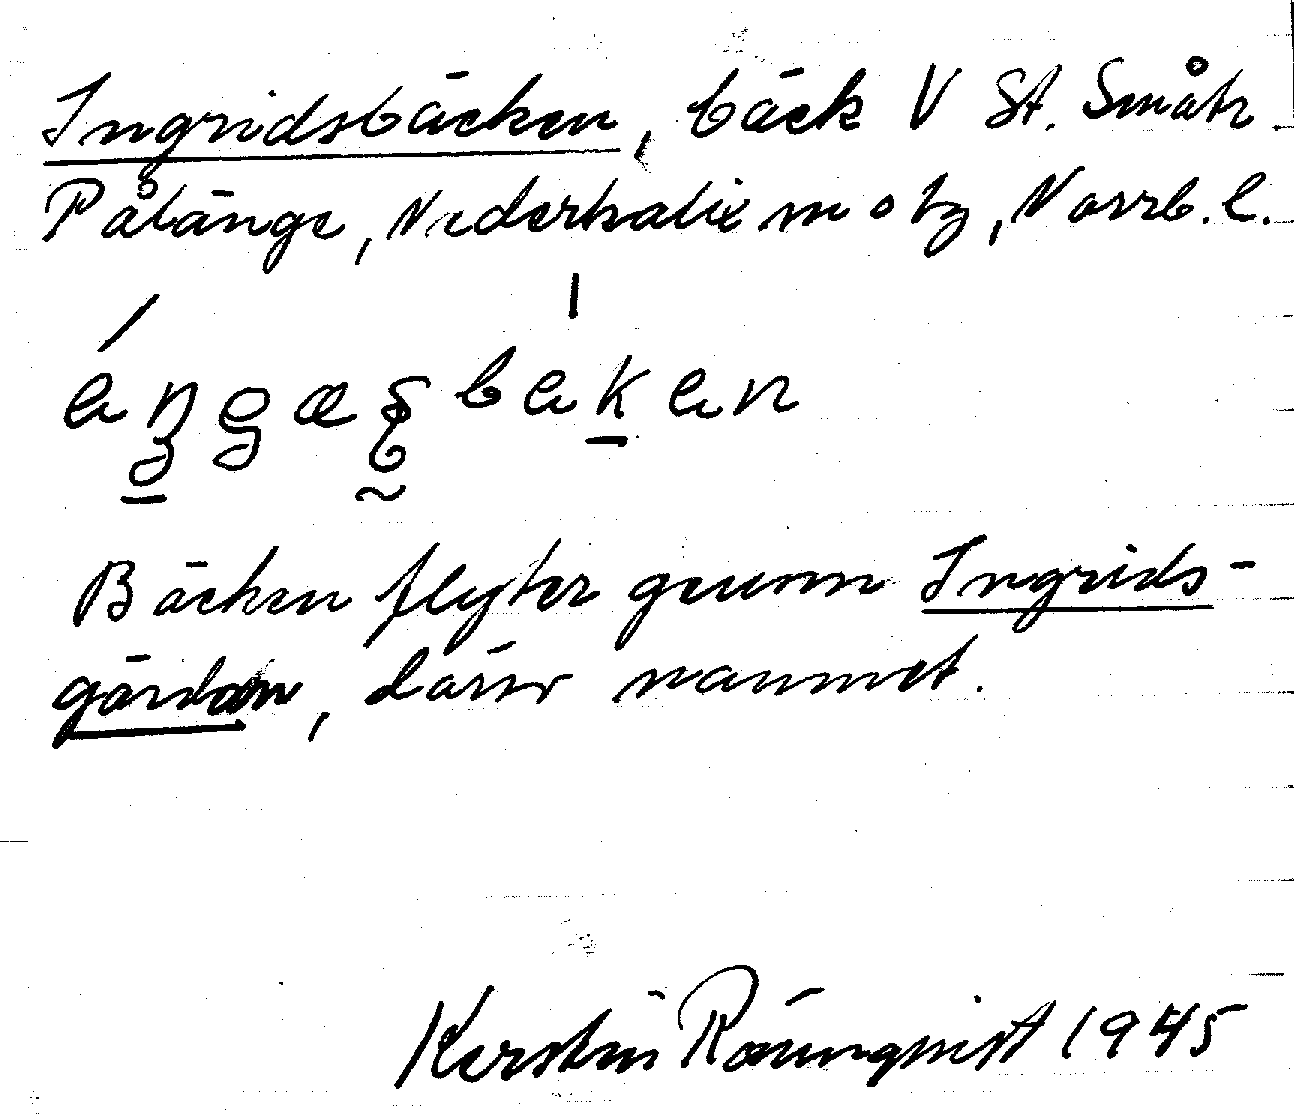 Ingridsbäcken, bäck V St. Småtr
Pålänge, Nederkalix sn o tg, Norrb. l.
Bäcken flyter genom Ingrids-
gärdan, därav namnet.
Kerstin Rönnqvist 1945